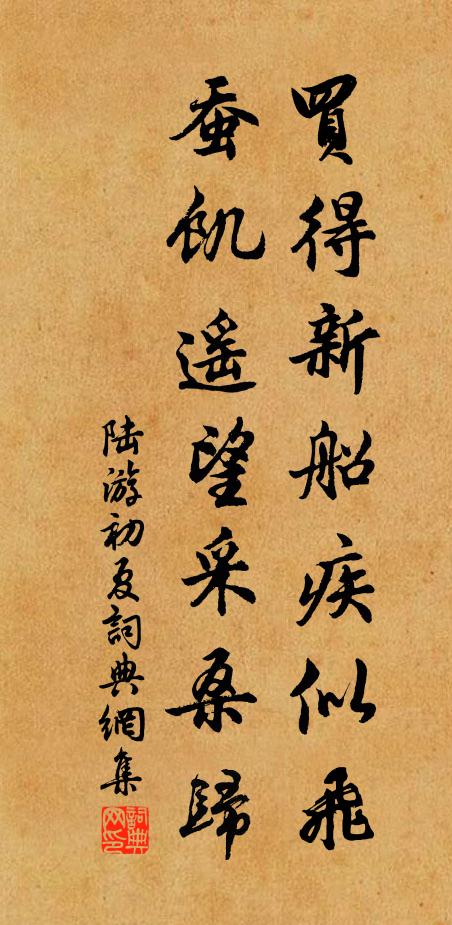 買得新船疾似飛
蚕飢遥望采桑歸
陆游初夏詞典網集
詞典网印